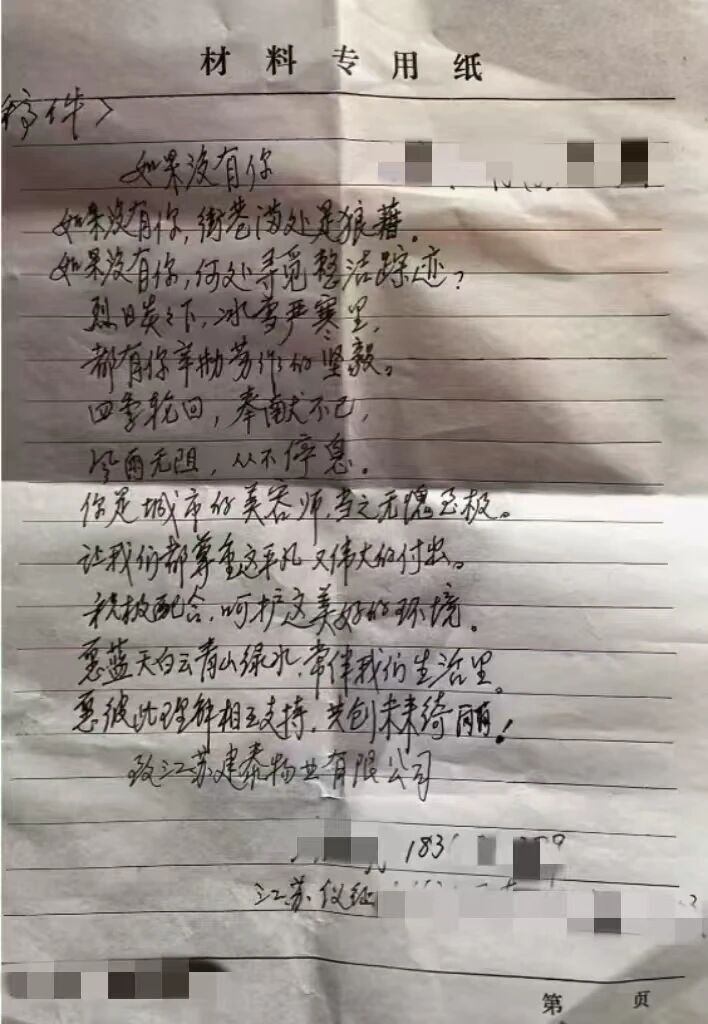 材料专用纸
稿件>
如果没有你
如果没有你,街巷满处是狼藉.
如果没有你,何处寻觅整洁踪迹?
烈日炎炎下,冰雪严寒里,
都有你辛勤劳作的坚毅。
四季轮回,奉献不已,
风雨无阻,从不停息。
你是城市的美容师,当之无愧至极。
让我们都尊重这平凡又伟大的付出。
积极配合,呵护这美好的环境.
愿蓝天白云青山绿水,常伴我们生活里.
愿彼此理解相互支持,共创未来绮丽!
致江苏建泰物业有限公司
183
江苏仪征
第 页